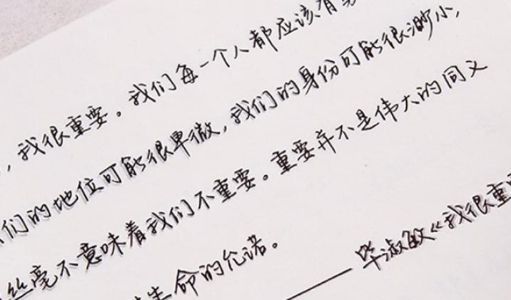 ，我很重要。我们每一个人都应该有
们的地位可能很卑微，我们的身份可能很渺小，
丝毫不意味着我们不重要。重要并不是伟大的同义
生命的允诺。
——毕淑敏《我很重